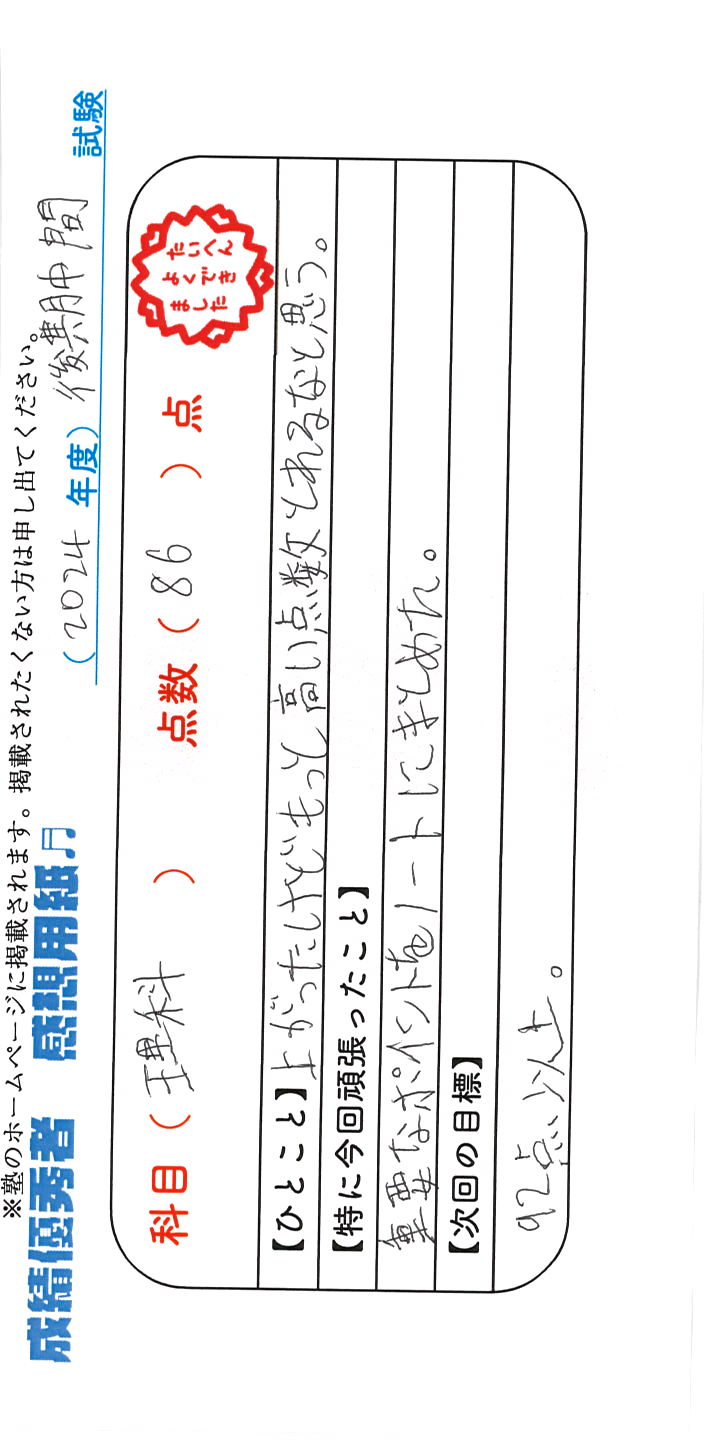 ※塾のホームページに掲載されます。掲載されたくない方は申し出てください。
成績優秀者 感想用紙♫ (2024 年度) 後期中間 試験
科目 ( 理科 ) 点数 ( 86 ) 点
たいへん
よくでき
ました
【ひとこと】上がったけどもっと高い点数とれるなと思う。
【特に今回頑張ったこと】
重要なポイントをノートにまとめた。
【次回の目標】
92点以上。